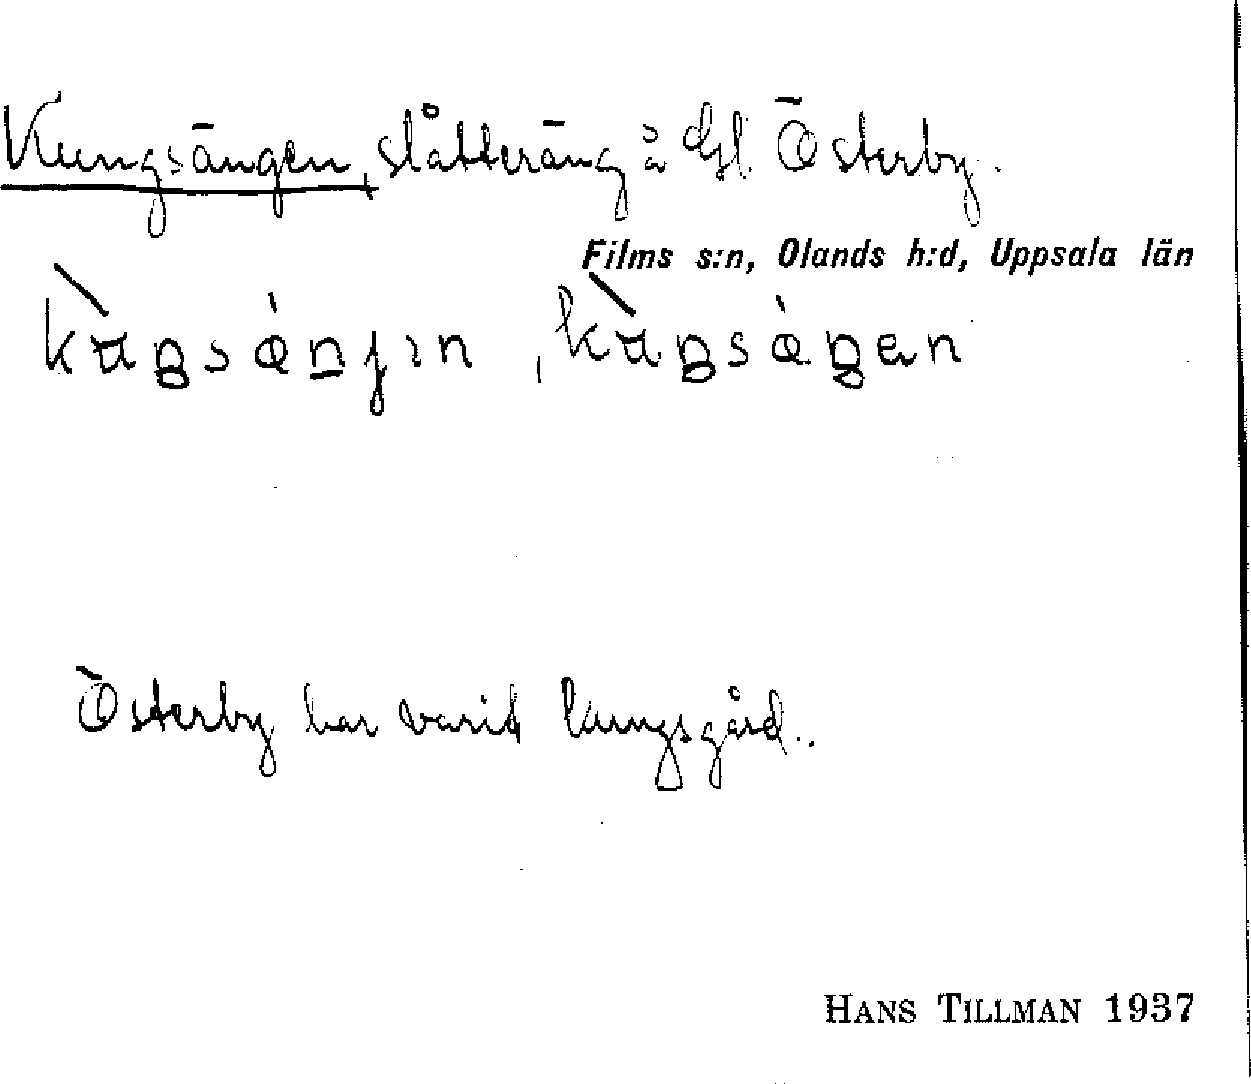 Kungsängen, slåtteräng å Gl. Österby.
Films s:n, Olands h:d, Uppsala län
Österby har varit kungsgård.
HANS TILLMAN 1937